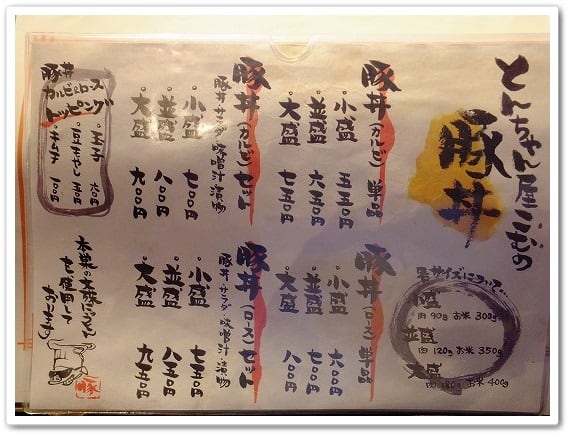 とんちゃん屋こむの
豚丼
豚丼(カルビ)単品
。小盛 五五〇円
。並盛 六五〇円
。大盛 七五〇円
豚丼(カルビ)セット
豚丼・サラダ・味噌汁・漬物
。小盛 七〇〇円
。並盛 八〇〇円
。大盛
豚丼
カルビ&ロース
トッピング
。玉子 六〇円
。豆もやし 五〇円
。キムチ 一〇〇円
肉 90g お米 300g
並盛
肉 120g お米 350g
大盛
肉 180g お米 400g
豚丼(ロース)単品
。小盛 六〇〇円
。並盛 七〇〇円
。大盛 八〇〇円
豚丼(ロース)セット
豚丼・サラダ・味噌汁・漬物
。小盛 七五〇円
。並盛 八五〇円
。大盛 九五〇円
使用して
おります
豚